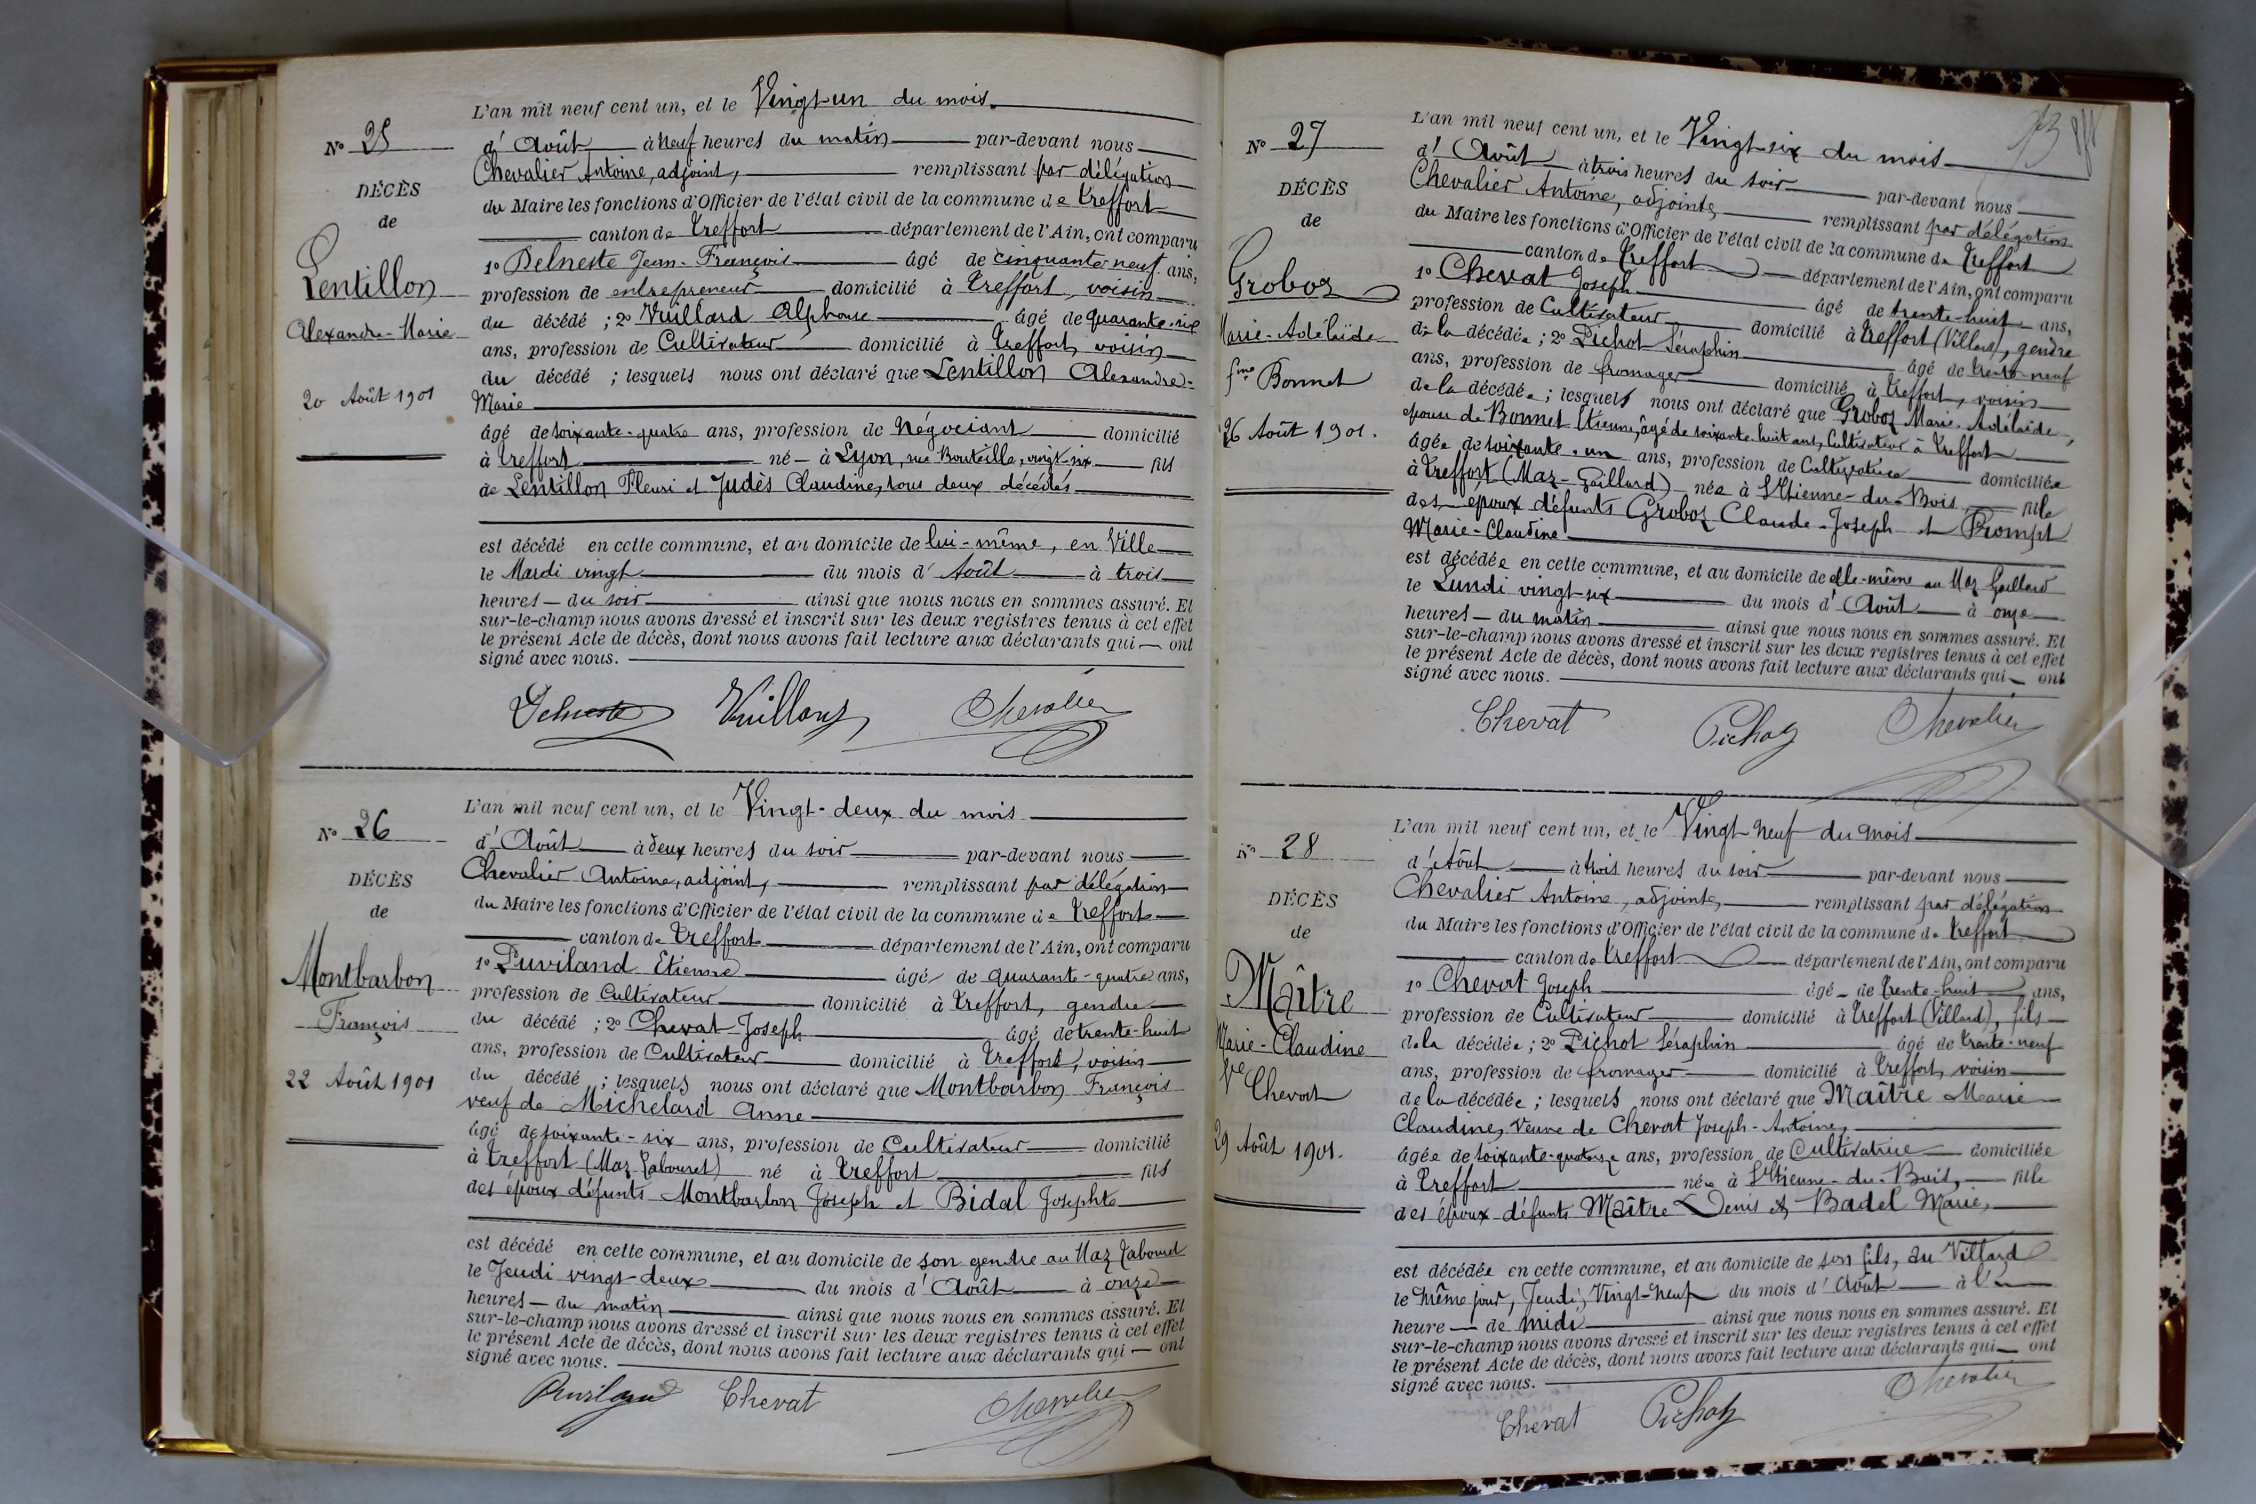 L'an mil neuf cent un, et le Vingt-un du mois
N° 25
d'Août à neuf heures du matin par-devant nous
Chevalier Antoine, adjoint, remplissant par délégation
DÉCÈS
du Maire les fonctions d'Officier de l'état civil de la commune de Treffort
de
canton de Treffort département de l'Ain, ont comparu
1° Delneste Jean-François âgé de cinquante-neuf ans,
Lentillon
profession de entrepreneur domicilié à Treffort, voisin
du décédé ; 2° Vuillard Alphonse âgé de quarante-six
Alexandre-Marie
ans, profession de Cultivateur domicilié à Treffort, voisin
du décédé ; lesquels nous ont déclaré que Lentillon Alexandre-
20 Août 1901
Marie
âgé de soixante-quatre ans, profession de Négociant domicilié
à Treffort né à Lyon, rue Bouteille, vingt-six fils
de Lentillon Fleuri et Judès Claudine, tous deux décédés
est décédé en cette commune, et au domicile de lui-même, en Ville
le Mardi vingt du mois d'Août à trois
heures du soir ainsi que nous nous en sommes assuré. Et
sur-le-champ nous avons dressé et inscrit sur les deux registres tenus à cet effet
le présent Acte de décès, dont nous avons fait lecture aux déclarants qui ont
signé avec nous.
Delneste Vuillard Chevalier
L'an mil neuf cent un, et le Vingt-deux du mois
N° 26
d'Août à deux heures du soir par-devant nous
Chevalier Antoine, adjoint, remplissant par délégation
DÉCÈS
du Maire les fonctions d'Officier de l'état civil de la commune de Treffort
de
canton de Treffort département de l'Ain, ont comparu
1° Puviland Etienne âgé de quarante-quatre ans,
Montbarbon
profession de Cultivateur domicilié à Treffort, gendre
François
du décédé ; 2° Chevat Joseph âgé de trente-huit
ans, profession de Cultivateur domicilié à Treffort, voisin
22 Août 1901
du décédé ; lesquels nous ont déclaré que Montbarbon François
veuf de Michelard Anne
âgé de soixante-six ans, profession de Cultivateur domicilié
à Treffort (Maz-Tabouret) né à Treffort fils
des époux défunts Montbarbon Joseph et Bidal Josephte
est décédé en cette commune, et au domicile de son gendre au Maz Tabouret
le Jeudi vingt-deux du mois d'Août à onze
heures du matin ainsi que nous nous en sommes assuré. Et
sur-le-champ nous avons dressé et inscrit sur les deux registres tenus à cet effet
le présent Acte de décès, dont nous avons fait lecture aux déclarants qui ont
signé avec nous.
Puviland Chevat Chevalier
73
L'an mil neuf cent un, et le Vingt-six du mois
N° 27
d'Août à trois heures du soir par-devant nous
Chevalier Antoine, adjoint, remplissant par délégation
DÉCÈS
du Maire les fonctions d'Officier de l'état civil de la commune de Treffort
de
canton de Treffort département de l'Ain, ont comparu
Groboz
1° Chevat Joseph âgé de trente-huit ans,
profession de Cultivateur domicilié à Treffort (Villard), gendre
Marie-Adélaïde
de la décédée ; 2° Pichot Séraphin âgé de trente-neuf
ans, profession de fromager domicilié à Treffort, voisin
fme Bonnet
de la décédée ; lesquels nous ont déclaré que Groboz Marie-Adélaïde,
épouse de Bonnet Etienne, âgé de soixante-huit ans, Cultivateur à Treffort
26 Août 1901.
âgée de soixante-un ans, profession de Cultivatrice domiciliée
à Treffort (Maz-Gaillard) née à St Etienne-du-Bois fille
des époux défunts Groboz Claude-Joseph et Prompt
Marie-Claudine
est décédée en cette commune, et au domicile de elle-même au Maz Gaillard
le Lundi vingt-six du mois d'Août à onze
heures du matin ainsi que nous nous en sommes assuré. Et
sur-le-champ nous avons dressé et inscrit sur les deux registres tenus à cet effet
le présent Acte de décès, dont nous avons fait lecture aux déclarants qui ont
signé avec nous.
Chevat Pichot Chevalier
L'an mil neuf cent un, et le Vingt-neuf du mois
N° 28
d'Août à trois heures du soir par-devant nous
Chevalier Antoine, adjoint, remplissant par délégation
DÉCÈS
du Maire les fonctions d'Officier de l'état civil de la commune de Treffort
de
canton de Treffort département de l'Ain, ont comparu
Maître
1° Chevat Joseph âgé de trente-huit ans,
profession de Cultivateur domicilié à Treffort (Villard), fils
Marie-Claudine
de la décédée ; 2° Pichot Séraphin âgé de trente-neuf
ans, profession de fromager domicilié à Treffort, voisin
Ve Chevat
de la décédée ; lesquels nous ont déclaré que Maître Marie
Claudine, Veuve de Chevat Joseph-Antoine,
29 Août 1901.
âgée de soixante-quatorze ans, profession de Cultivatrice domiciliée
à Treffort née à St Etienne-du-Bois, fille
des époux défunts Maître Denis et Badel Marie,
est décédée en cette commune, et au domicile de son fils, au Villard
le même jour, Jeudi, Vingt-neuf du mois d'Août à l'une
heure de midi ainsi que nous nous en sommes assuré. Et
sur-le-champ nous avons dressé et inscrit sur les deux registres tenus à cet effet
le présent Acte de décès, dont nous avons fait lecture aux déclarants qui ont
signé avec nous.
Chevat Pichot Chevalier